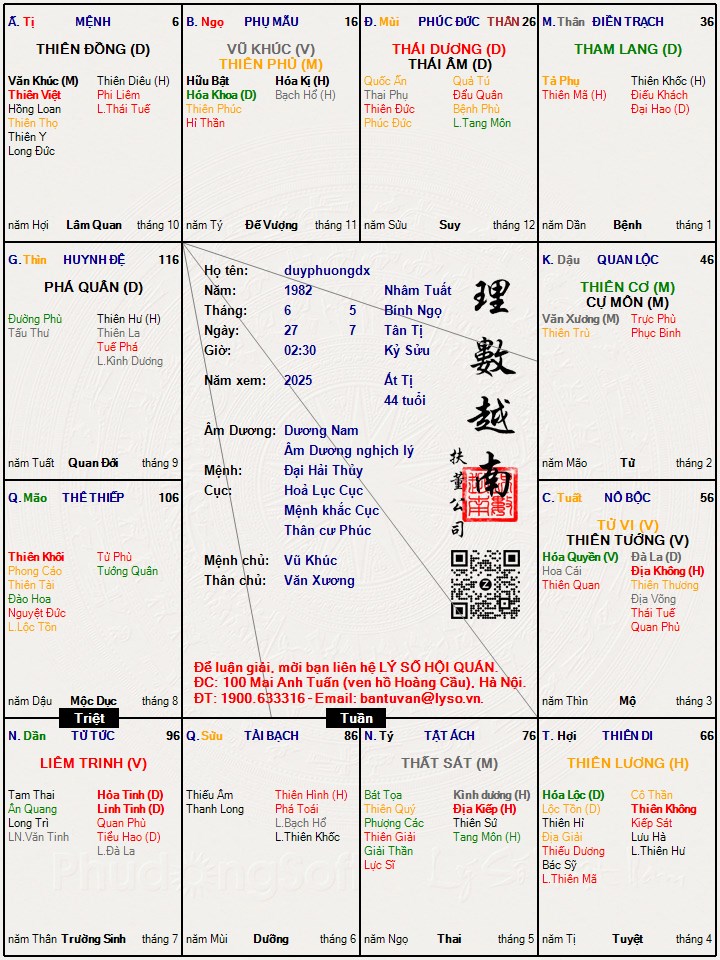 Ấ. Tị MỆNH 6
THIÊN ĐỒNG (D)
Văn Khúc (M) Thiên Diêu (H)
Thiên Việt Phi Liêm
Hồng Loan L.Thái Tuế
Thiên Thọ
Thiên Y
Long Đức
năm Hợi Lâm Quan tháng 10
B. Ngọ PHỤ MẪU 16
VŨ KHÚC (V)
THIÊN PHỦ (M)
Hữu Bật Hóa Kị (H)
Hóa Khoa (D) Bạch Hổ (H)
Thiên Phúc
Hỉ Thần
năm Tý Đế Vượng tháng 11
Đ. Mùi PHÚC ĐỨC THÂN 26
THÁI DƯƠNG (D)
THÁI ÂM (D)
Quốc Ấn Quả Tú
Thai Phụ Đẩu Quân
Thiên Đức Bệnh Phù
Phúc Đức L.Tang Môn
năm Sửu Suy tháng 12
M. Thân ĐIỀN TRẠCH 36
THAM LANG (D)
Tả Phụ Thiên Khốc (H)
Thiên Mã (H) Điếu Khách
Đại Hao (D)
năm Dần Bệnh tháng 1
G. Thìn HUYNH ĐỆ 116
PHÁ QUÂN (D)
Đường Phù Thiên Hư (H)
Tấu Thư Thiên La
Tuế Phá
L.Kình Dương
năm Tuất Quan Đới tháng 9
Họ tên: duyphuongdx
Năm: 1982 Nhâm Tuất
Tháng: 6 5 Bính Ngọ
Ngày: 27 7 Tân Tị
Giờ: 02:30 Kỷ Sửu
Năm xem: 2025 Ất Tị
44 tuổi
Âm Dương: Dương Nam
Âm Dương nghịch lý
Mệnh: Đại Hải Thủy
Cục: Hoả Lục Cục
Mệnh khắc Cục
Thân cư Phúc
Mệnh chủ: Vũ Khúc
Thân chủ: Văn Xương
理數越南
扶董公司
Để luận giải, mời bạn liên hệ LÝ SỐ HỘI QUÁN.
ĐC: 100 Mai Anh Tuấn (ven hồ Hoàng Cầu), Hà Nội.
ĐT: 1900.633316 - Email: bantuvan@lyso.vn.
K. Dậu QUAN LỘC 46
THIÊN CƠ (M)
CỰ MÔN (M)
Văn Xương (M) Trực Phù
Thiên Trù Phục Binh
năm Mão Tử tháng 2
Q. Mão THÊ THIẾP 106
Thiên Khôi Tử Phù
Phong Cáo Tướng Quân
Thiên Tài
Đào Hoa
Nguyệt Đức
L.Lộc Tồn
năm Dậu Mộc Dục tháng 8
C. Tuất NÔ BỘC 56
TỬ VI (V)
THIÊN TƯỚNG (V)
Hóa Quyền (V) Đà La (D)
Hoa Cái Địa Không (H)
Thiên Quan Thiên Thương
Địa Võng
Thái Tuế
Quan Phủ
năm Thìn Mộ tháng 3
Triệt
Tuần
N. Dần TỬ TỨC 96
LIÊM TRINH (V)
Tam Thai Hỏa Tinh (D)
Ân Quang Linh Tinh (D)
Long Trì Quan Phù
LN.Văn Tinh Tiểu Hao (D)
L.Đà La
năm Thân Trường Sinh tháng 7
Q. Sửu TÀI BẠCH 86
Thiếu Âm Thiên Hình (H)
Thanh Long Phá Toái
L.Bạch Hổ
L.Thiên Khốc
năm Mùi Dưỡng tháng 6
N. Tý TẬT ÁCH 76
THẤT SÁT (M)
Bát Tọa Kình dương (H)
Thiên Quý Địa Kiếp (H)
Phượng Các Thiên Sứ
Thiên Giải Tang Môn (H)
Giải Thần
Lực Sĩ
năm Ngọ Thai tháng 5
T. Hợi THIÊN DI 66
THIÊN LƯƠNG (H)
Hóa Lộc (D) Cô Thần
Lộc Tồn (D) Thiên Không
Thiên Hỉ Kiếp Sát
Địa Giải Lưu Hà
Thiếu Dương L.Thiên Hư
Bác Sỹ
L.Thiên Mã
năm Tị Tuyệt tháng 4